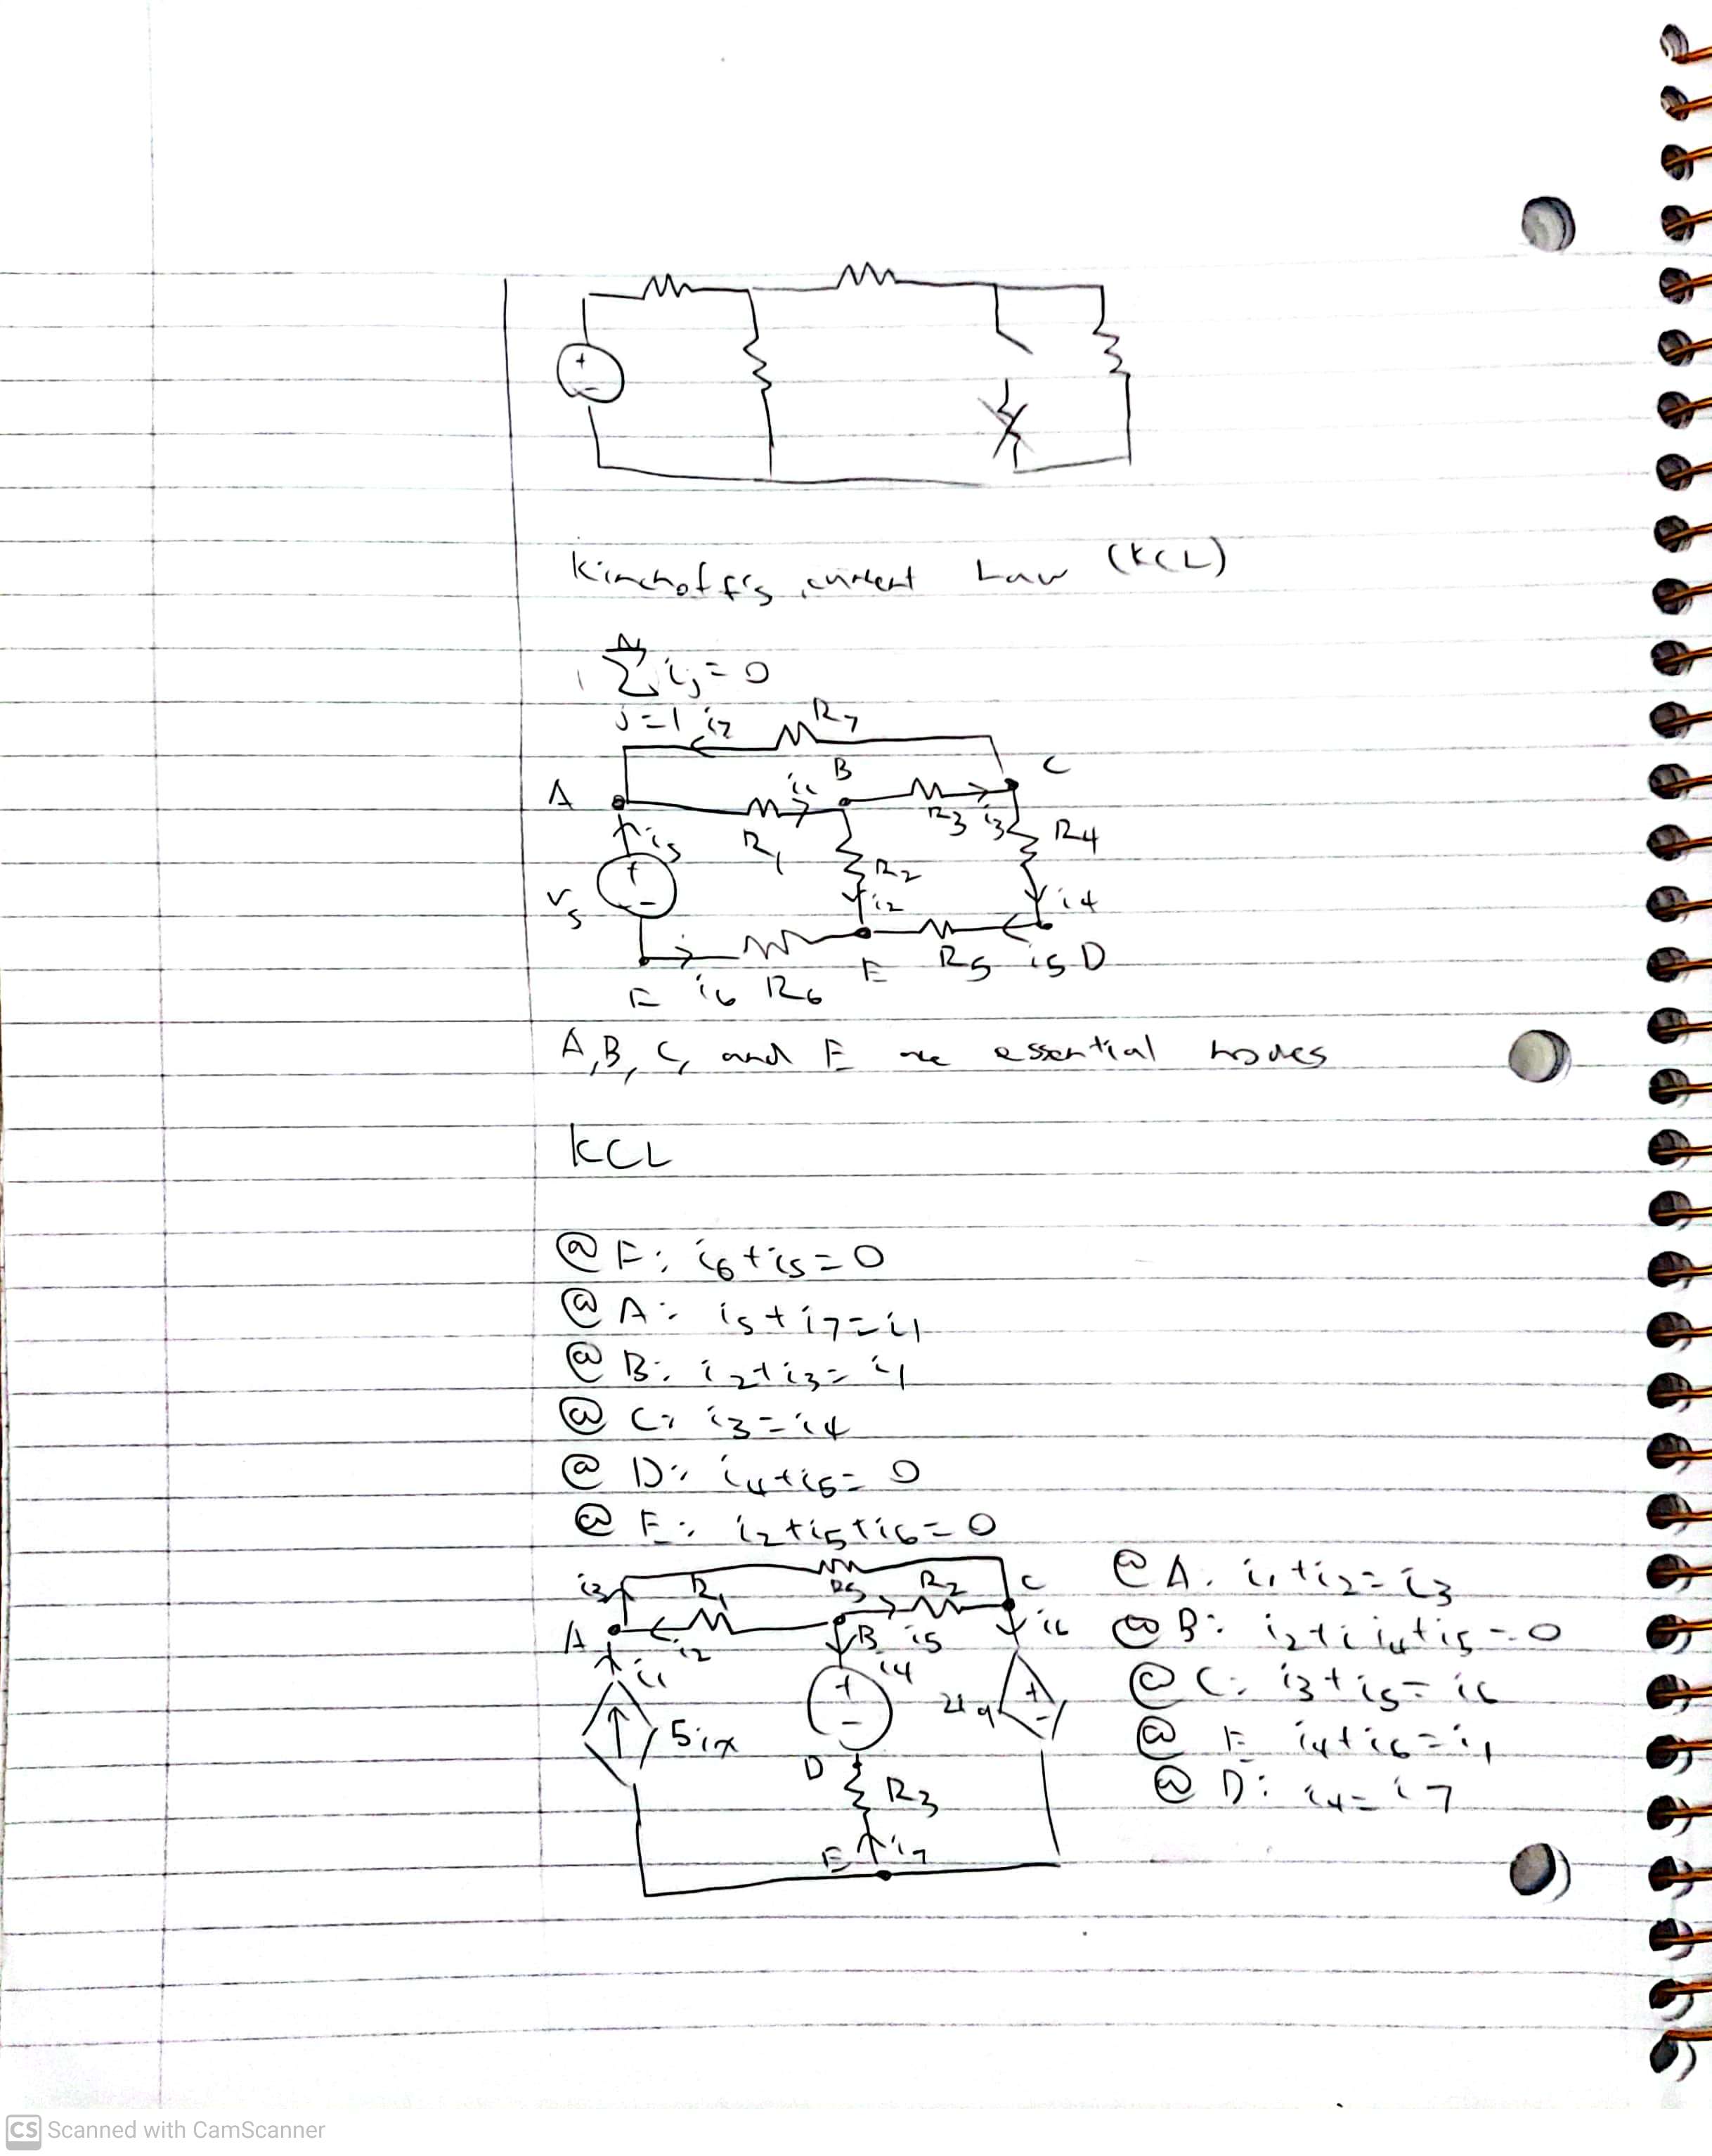 Kirchoff's current Law (KCL)
N
∑ ij = 0
j=1
i7 R7
A B C
i1 R3 i3 R4
is R1
R2
Vs + - i2 i4
E R5 i5 D
F i6 R6
A, B, C, and E are essential nodes
KCL
@ F: i6 + is = 0
@ A: is + i7 = i1
@ B: i2 + i3 = i1
@ C: i3 = i4
@ D: i4 + i5 = 0
@ E: i2 + i5 + i6 = 0
i3 R1 R5 R2 C
A i2 B i5 i6
i1 i4
5ix + - 2 + -
D R3
E i7
@ A. i1 + i2 = i3
@ B: i2 + i i4 + i5 = 0
@ C: i3 + i5 = i6
@ E i4 + i6 = i1
@ D: i4 = i7
CS Scanned with CamScanner